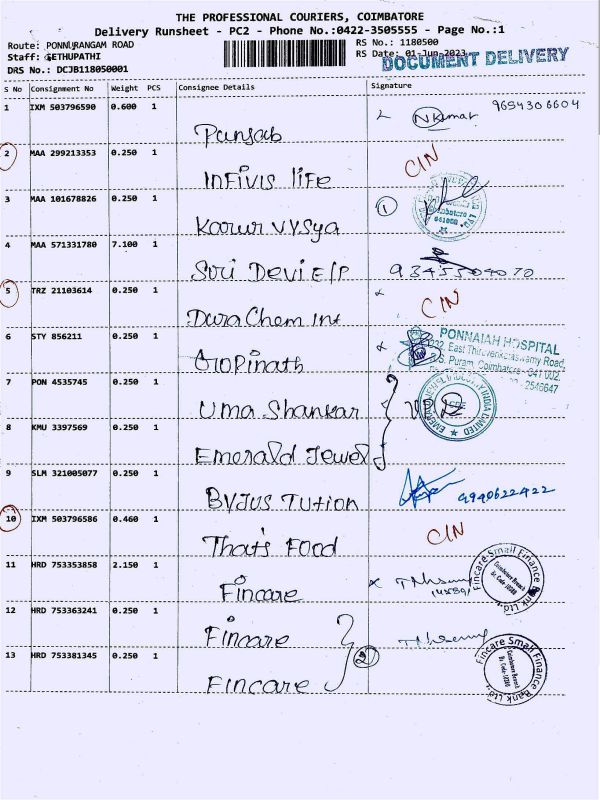 THE PROFESSIONAL COURIERS, COIMBATORE
Delivery Runsheet - PC2 - Phone No.:0422-3505555 - Page No.:1
Route: PONNURANGAM ROAD
RS No.: 1180500
Staff: SETHUPATHI
RS Date: 01-Jun-2023
DOCUMENT DELIVERY
DRS No.: DCJB118050001
S No Consignment No Weight PCS Consignee Details Signature
1 IXM 503796590 0.600 1 Punjab NKumar 9654306604
2 MAA 299213353 0.250 1 INFIVIS LIFE CIN
3 MAA 101678826 0.250 1 Karur VYSya 1
4 MAA 571331780 7.100 1 Sri Devi E/P 9345504070
5 TRZ 21103614 0.250 1 Dura Chem Int CIN
6 STY 856211 0.250 1 Gopinath
PONNAIAH HOSPITAL
East Thiruvenkataswamy Road,
R.S. Puram, Coimbatore - 641 002.
2546647
7 PON 4535745 0.250 1 Uma Shankar
EMERALD JEWEL INDUSTRY INDIA LIMITED
8 KMU 3397569 0.250 1 Emerald Jewel
9 SLM 321005077 0.250 1 BYJUS Tution 9940622422
10 IXM 503796586 0.460 1 That's Food CIN
11 HRD 753353858 2.150 1 Fincare
Fincare Small Finance Bank Ltd.
12 HRD 753363241 0.250 1 Fincare
13 HRD 753381345 0.250 1 Fincare
Fincare Small Finance Bank Ltd.